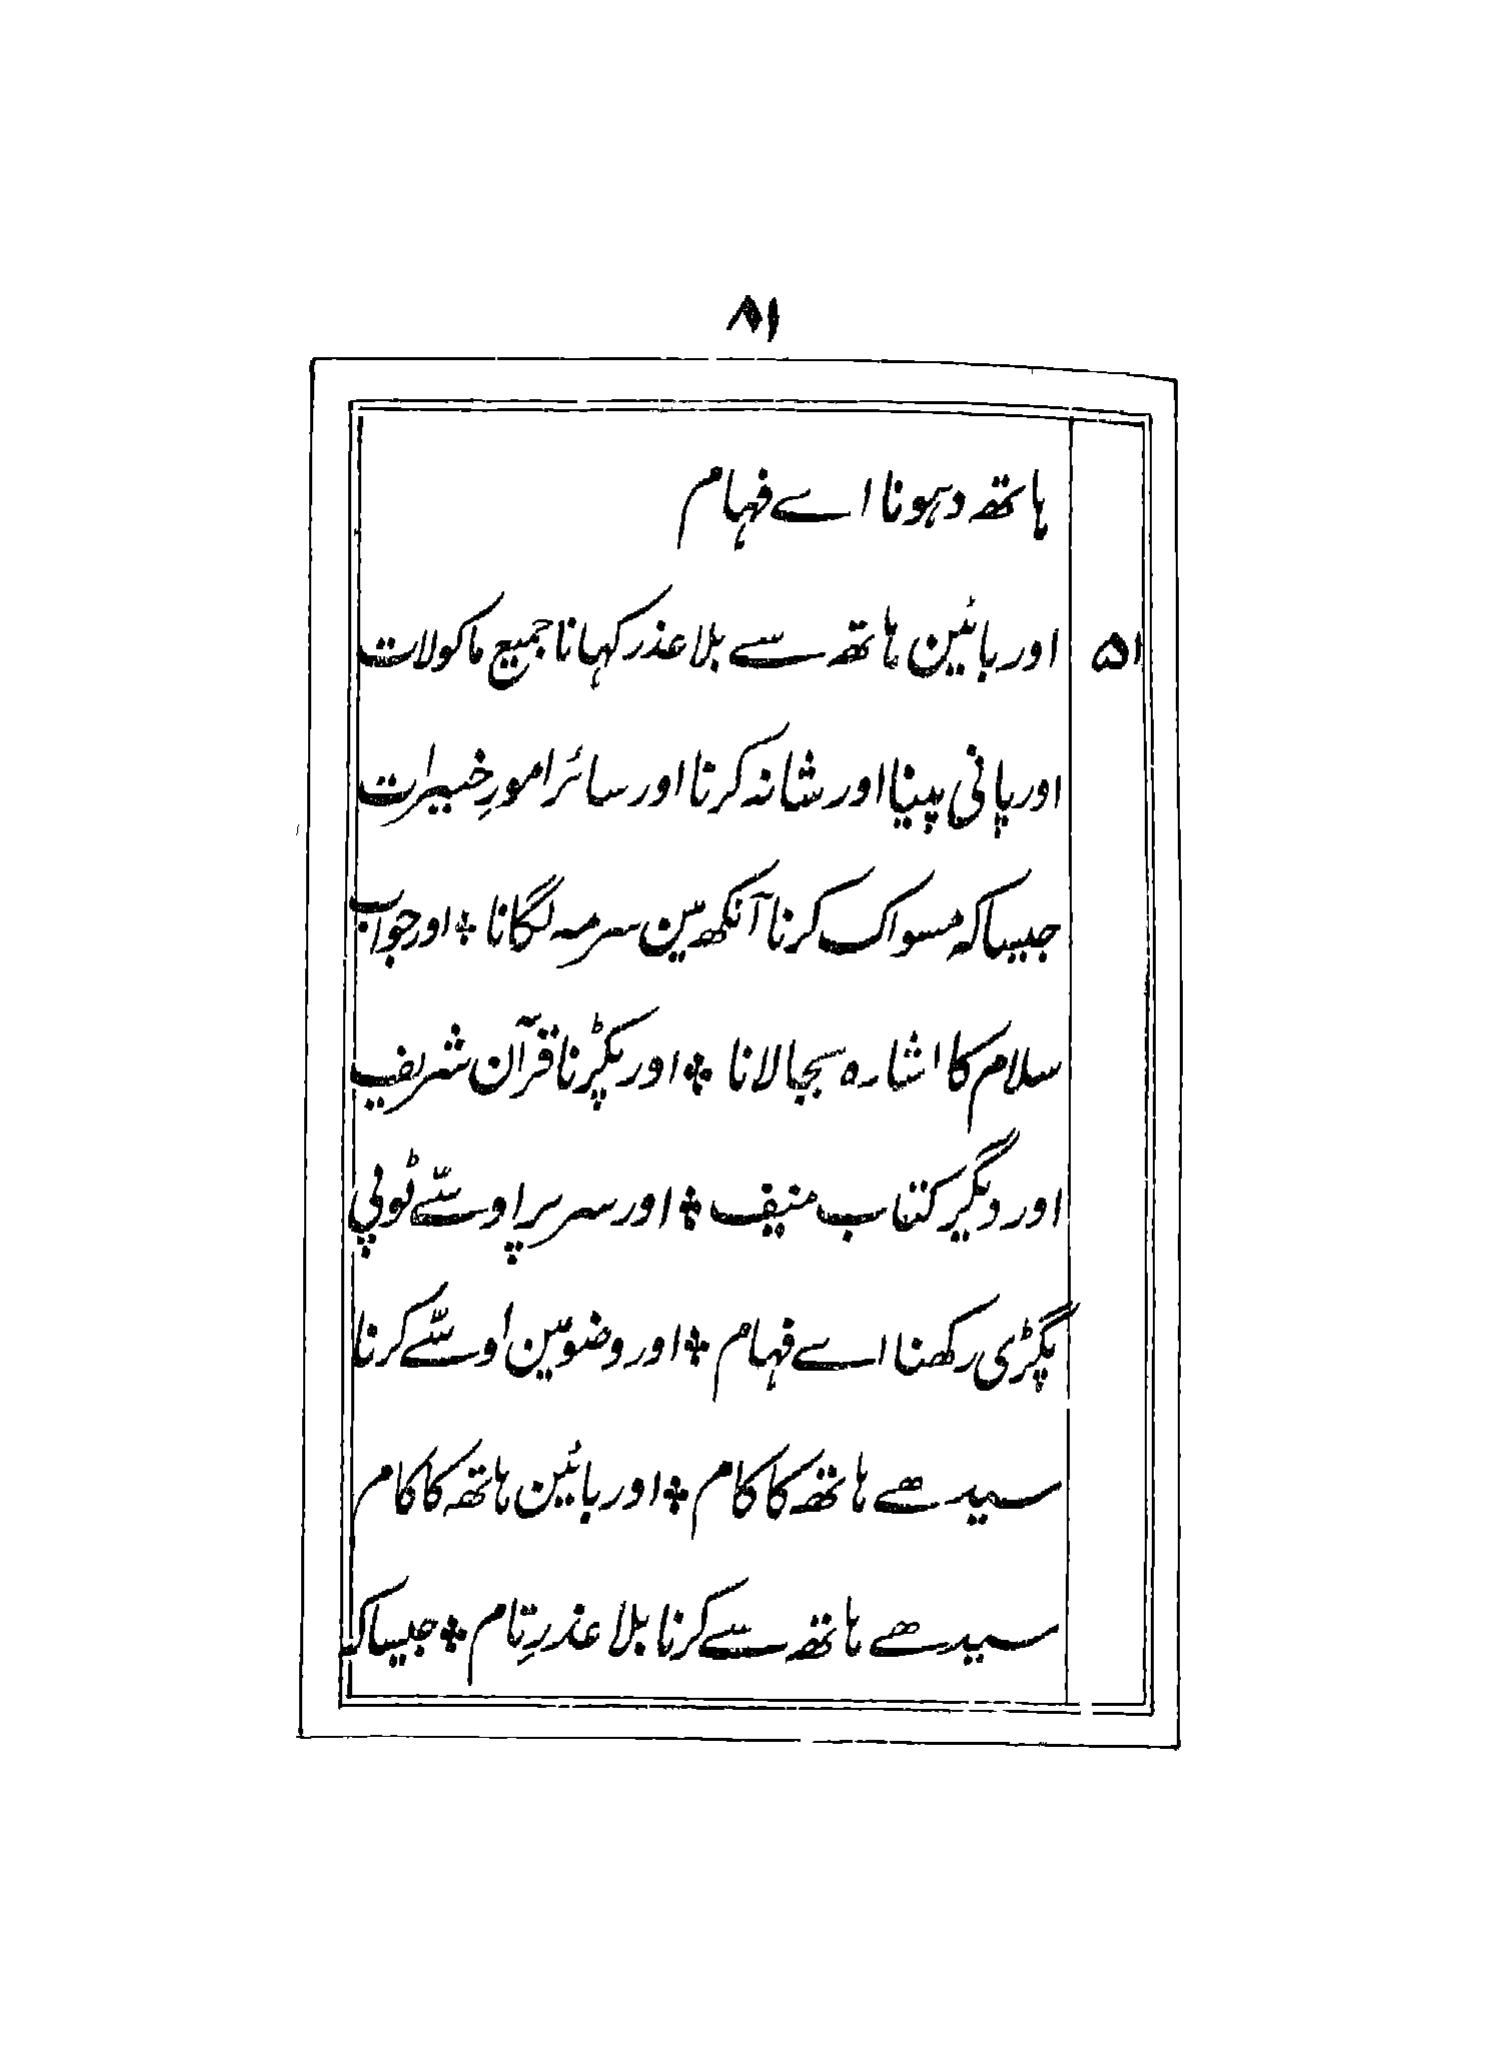 ۸۱
ہاتھ دہونا اے فہام
۵۱ اور بائین ہاتھ سے بلا عذر کہانا جمیع ماکولات
اور پانی پینا اور شانہ کرنا اور سائر امورِ خیرات
جیسا کہ مسواک کرنا آنکھ مین سرمہ لگانا ❖ اور جواب
سلام کا اشارہ بجالانا ❖ اور پکڑنا قرآن شریف
اور دیگر کتاب منیف ❖ اور سر پر اوسّے ٹوپی
پگڑی رکھنا اے فہام ❖ اور وضو مین اوسّے کرنا
سیدھے ہاتھ کا کام ❖ اور بائین ہاتھ کا کام
سیدھے ہاتھ سے کرنا بلا عذرِ تام ❖ جیسا کہ